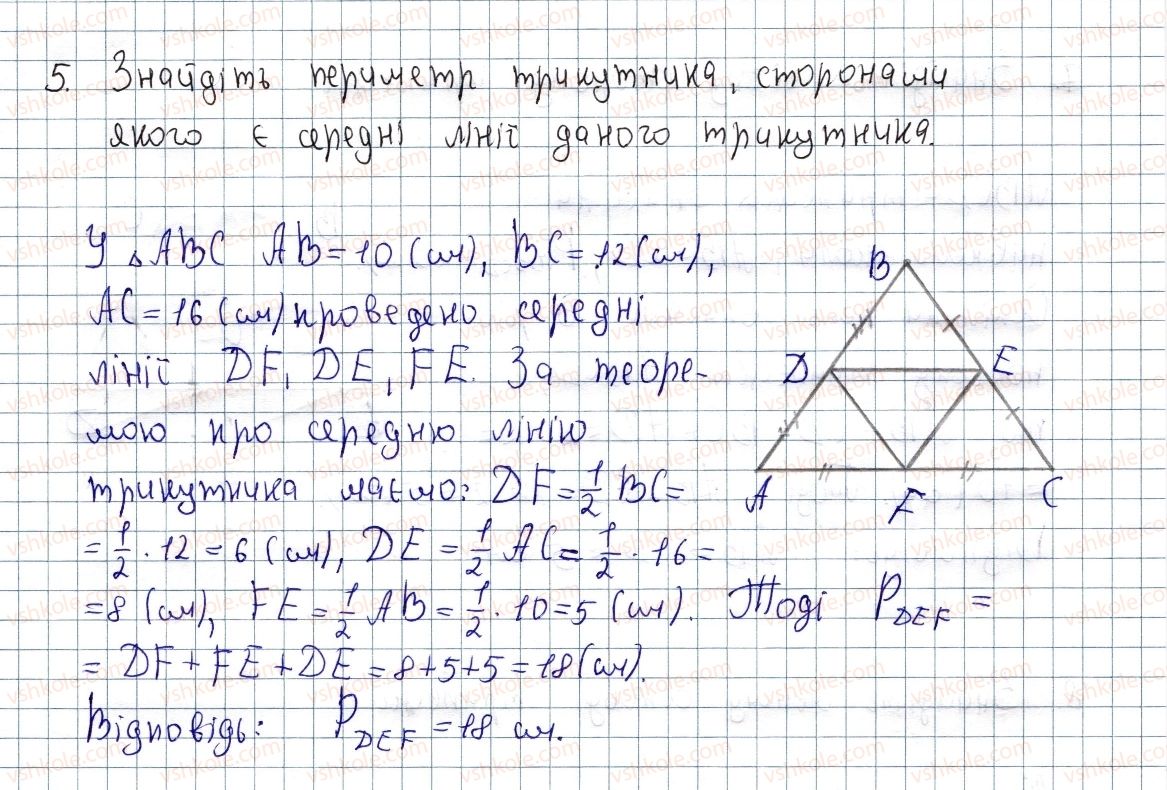 5. Знайдіть периметр трикутника, сторонами
якого є середні лінії даного трикутника.
У △ABC AB = 10 (см), BC = 12 (см),
AC = 16 (см) проведено середні
лінії DF, DE, FE. За теоре-
мою про середню лінію
трикутника маємо: DF = 1/2 BC =
= 1/2 · 12 = 6 (см), DE = 1/2 AC = 1/2 · 16 =
= 8 (см), FE = 1/2 AB = 1/2 · 10 = 5 (см). Тоді P DEF =
= DF + FE + DE = 8 + 5 + 5 = 18 (см).
Відповідь: P DEF = 18 см.
B
D E
A F C